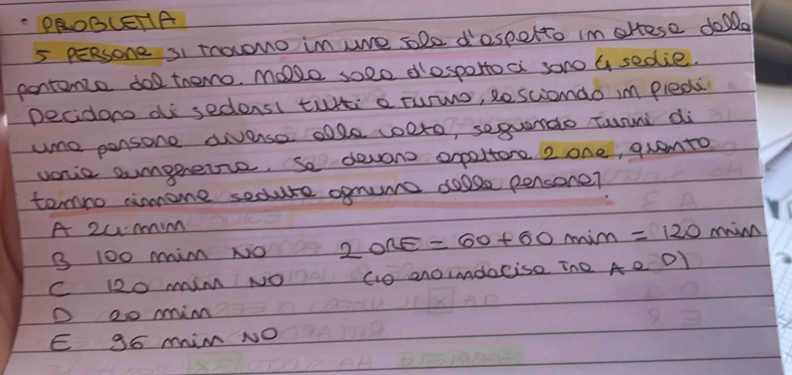 • PROBLEMA
5 PERSONE si trovano in una sala d'aspetto in attesa della
partenza del treno. Nella sala d'aspetto ci sono 4 sedie.
Decidono di sedersi tutti a turno, lasciando in piedi
una persona diversa alla volta, seguendo turni di
uguale lunghezza. Se devono aspettare 2 ore, quanto
tempo rimane seduta ognuna delle persone?
A 24 min
B 100 min NO 2 ORE = 60 + 60 min = 120 min
C 120 min NO (io ero indecisa tra A e D)
D 20 min
E 96 min NO